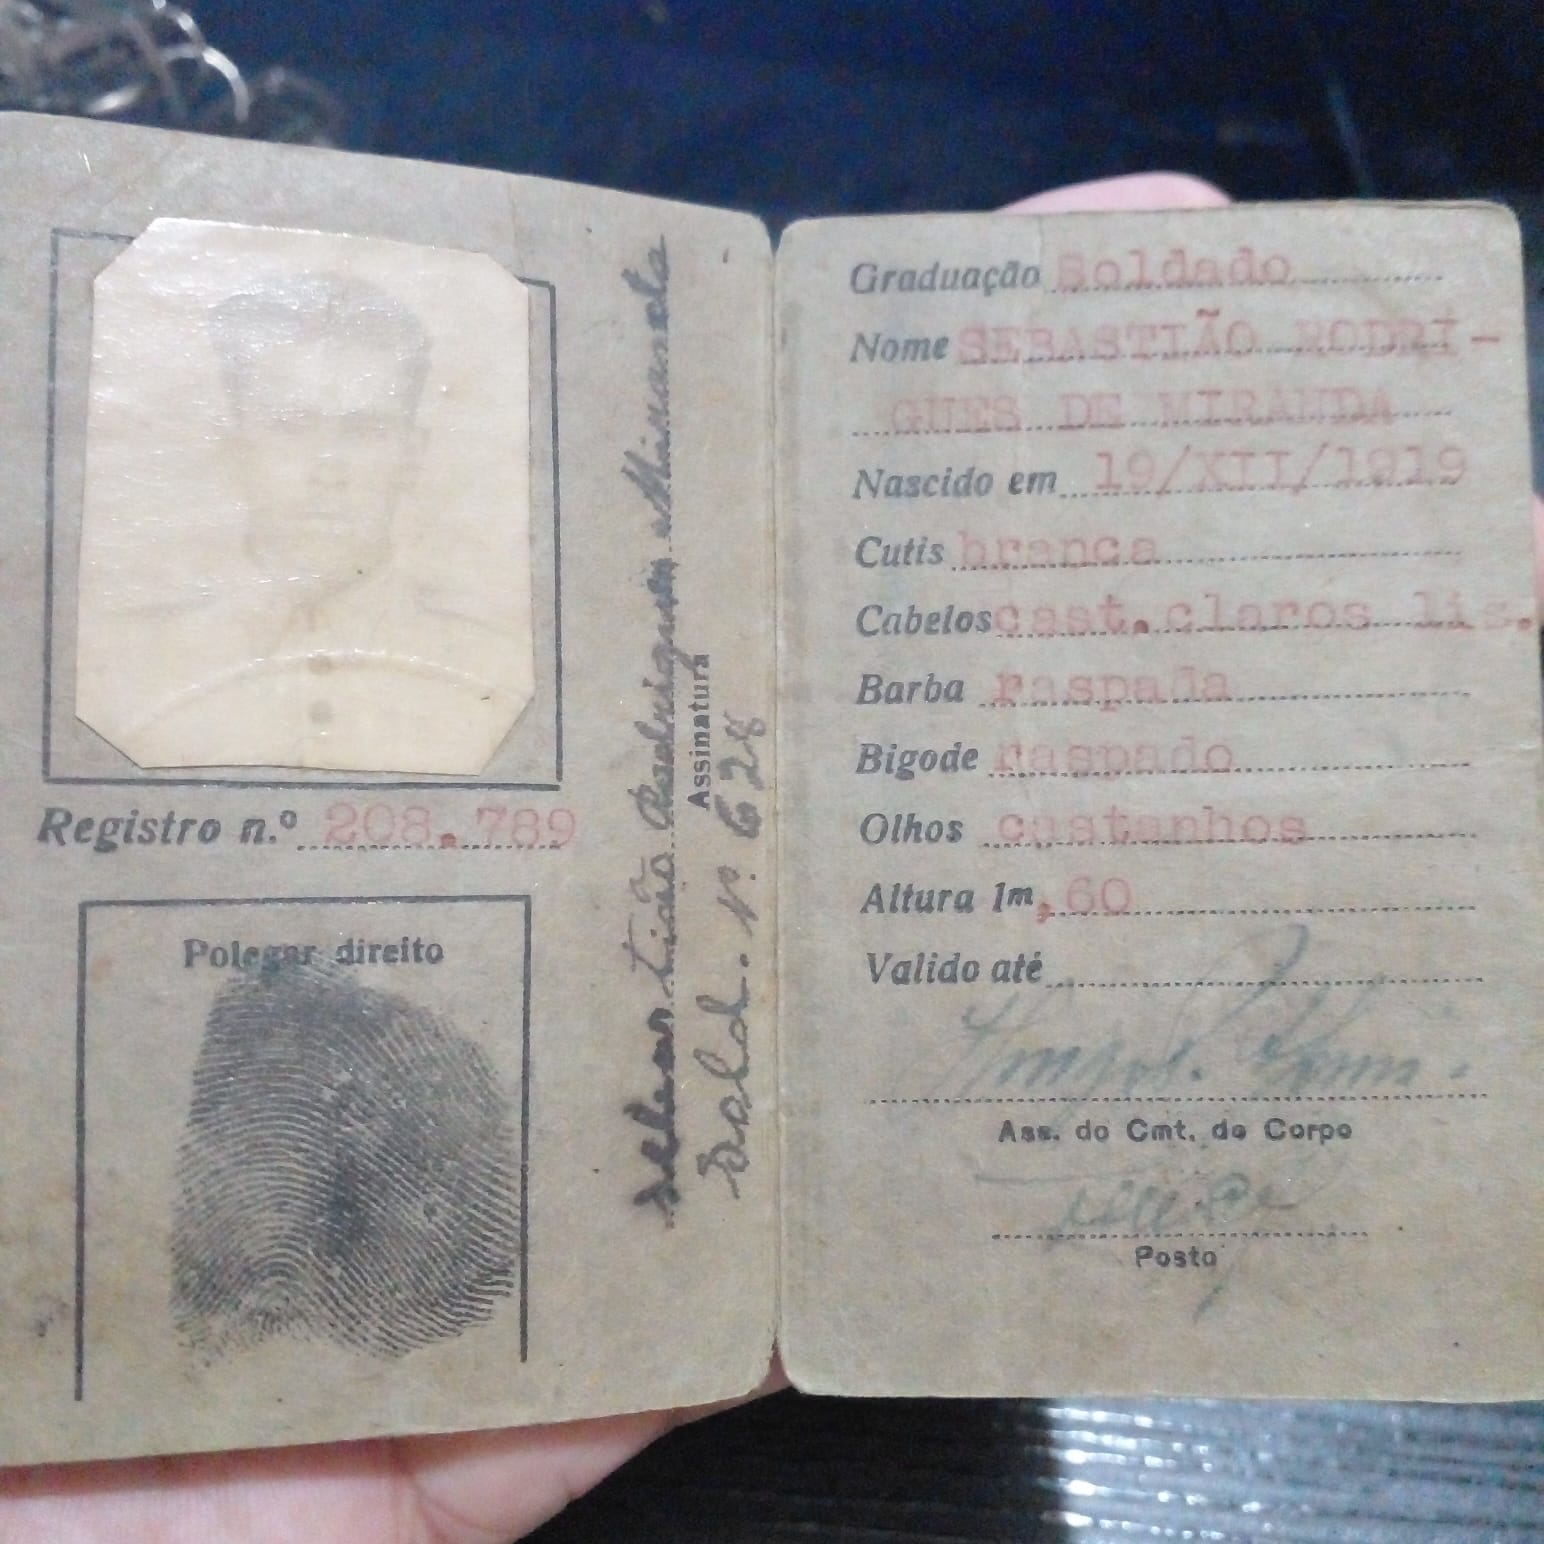 Registro n.º 208.789
Polegar direito
Sebastião Rodrigues Miranda
Assinatura
Sold. N. 628
Graduação Soldado
Nome SEBASTIÃO RODRI-
GUES DE MIRANDA
Nascido em 19/XII/1919
Cutis branca
Cabelos cast. claros lis.
Barba raspada
Bigode raspado
Olhos castanhos
Altura 1m,60
Valido até
Ass. do Cmt. do Corpo
Posto